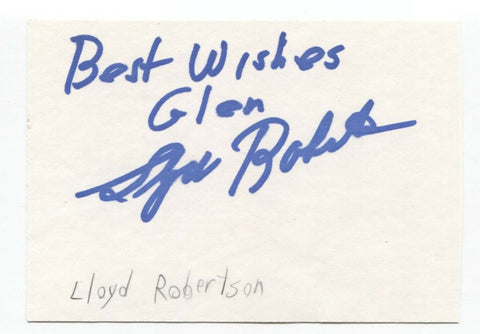 Best Wishes
Glen
Lloyd Robertson
Lloyd Robertson